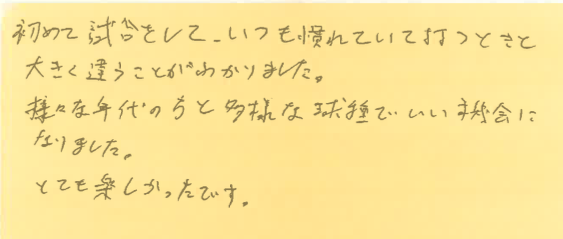 初めて試合をして、いつも慣れていて打つときと
大きく違うことがわかりました。
様々な年代の方と多様な球種でいい機会に
なりました。
とても楽しかったです。